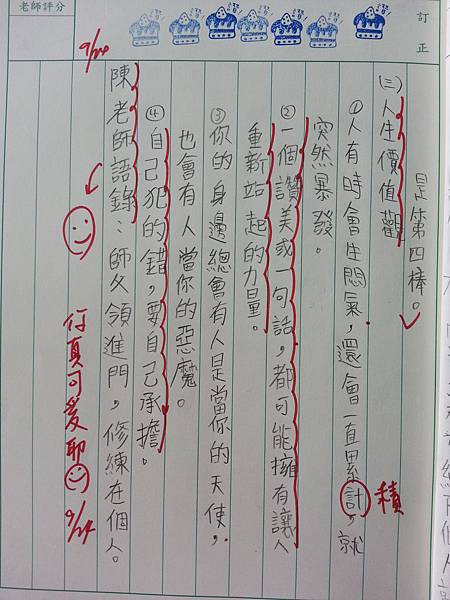 老師評分
訂正
是第四棒。
(二)人生價值觀
①人有時會生悶氣，還會一直累計，就
積
突然暴發。
②一個讚美或一句話，都可能擁有讓人
重新站起的力量。
③你的身邊總會有人是當你的天使，
也會有人當你的惡魔。
④自己犯的錯，要自己承擔。
陳老師語錄：師父領進門，修練在個人。
9/24
你真可愛耶 9/24